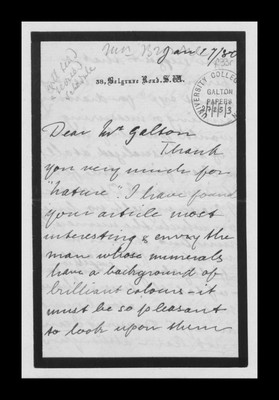 Jan 17/80
38, Belgrave Road. S.W.
UNIVERSITY COLLEGE
GALTON
PAPERS
Dear Mr Galton
Thank
you very much for
"Nature". I have found
your article most
interesting & envy the
man whose numerals
have a background of
brilliant colours - it
must be so pleasant
to look upon them